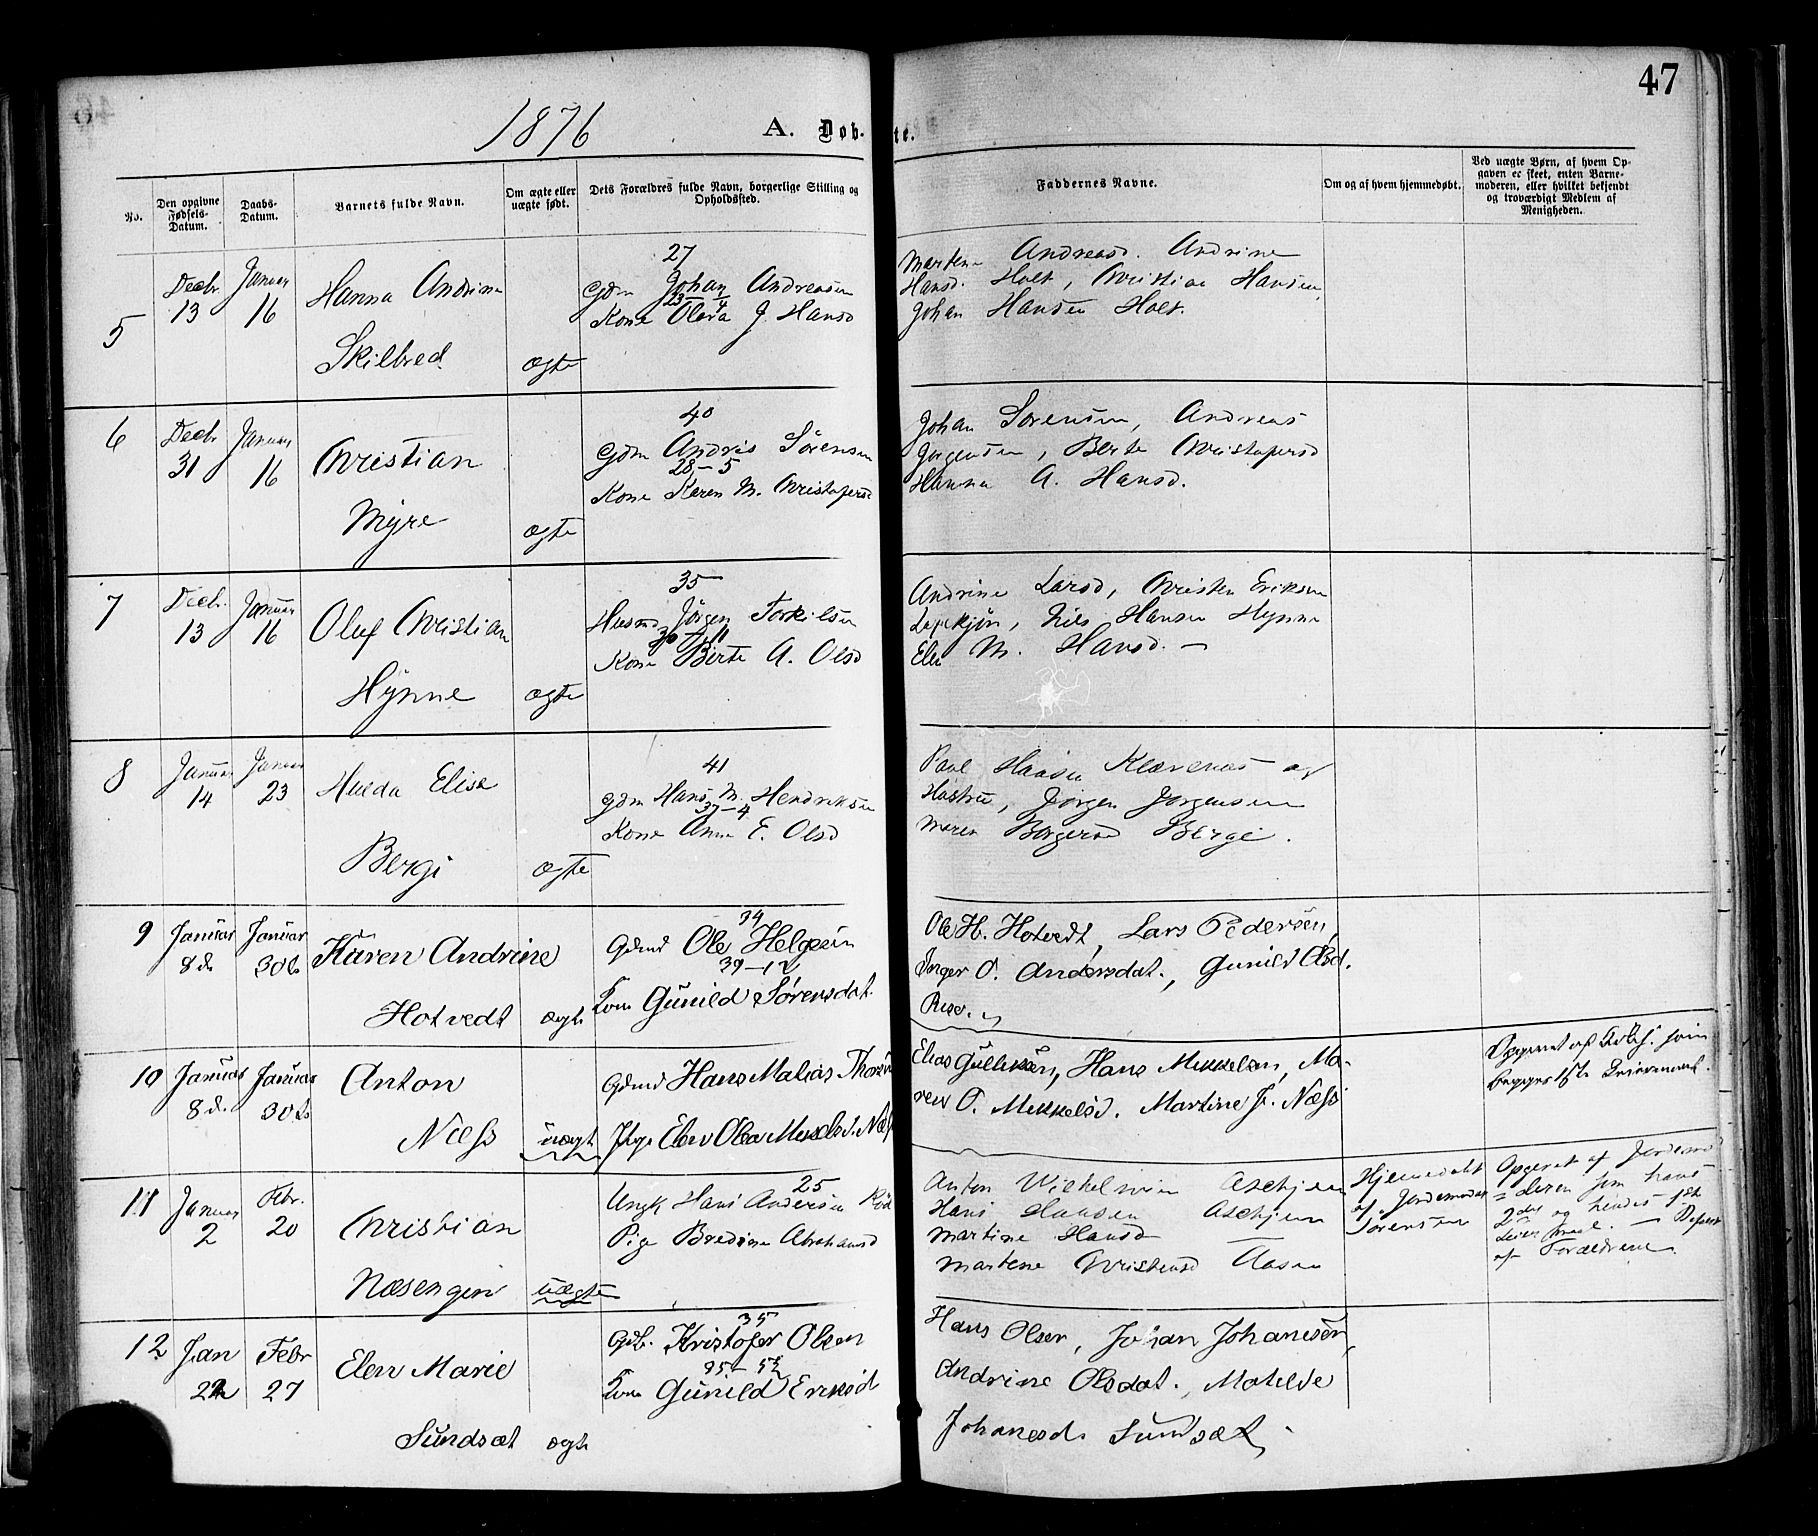 47
1876
A. Døb- te.
No.
Den opgivne Fødsels-Datum.
Daabs-Datum.
Barnets fulde Navn.
Om ægte eller uægte født.
Dets Forældres fulde Navn, borgerlige Stilling og Opholdssted.
Faddernes Navne.
Om og af hvem hjemmedøbt.
Ved uægte Børn, af hvem Opgaven er skeet, enten Barnemoderen, eller hvilket bekjendt og troværdigt Medlem af Menigheden.
5
Decbr 13
Januar 16
Hanna Andrine
Skilbred
ægte
27
Gdm Johan Andreasen
23 - 4
Kone Olava J. Hansd
Martene Andreasd. Andrine
Hansd. Holt, Christian Hansen,
Johan Hansen Holt.
6
Decbr 31
Januar 16
Christian
Myre
ægte
40
Gdm Andris Sørensen
28 - 5
Kone Karen M. Christofersd
Johan Sørensen, Andreas
Jørgensen, Berte Christofersd
Hanna A. Hansd.
7
Decbr. 13
Januar 16
Oluf Christian
Hynne
ægte
35
Husmd Jørgen Torkilsen
Kone Berte A. Olsd
Andrine Larsd, Christen Eriksen
Nils Hansen Hynne
Elen M. Hansd. -
8
Januar 14
Januar 23
Hulda Elise
Bergi
ægte
41
Gdm Hans M. Hendriksen
37 - 4
Kone Anne E. Olsd
Paul Hansen Klævenes og
Hustru, Jørgen Jørgensen
Maren Borgersd Bergi.
9
Januar 8 d.
Januar 30 te
Karen Andrine
Hotvedt
ægte
34
Gdmd Ole Helgesen
39 - 12
Kone Gunild Sørensdat.
Ole H. Hotvedt, Lars Pedersen,
Inger O. Andersdat., Gunild Olsd.
10
Januar 8 d.
Januar 30 te
Anton
Næss
uægte
Gdmd Hans Matias Thor
Pige Elen Olea Mikkelsd. Næs
Elias Gulliksen, Hans Mikkelsen, Ma-
ren O. Mikkelsd. Martine J. Næss
Opgivet af som
begges 1ste Leiermaal.
11
Januar 2
Febr. 20
Christian
Næsengen
uægte
25
Ungk Hans Andersen
Pige Bredine Abrahamsd
Anton Vilhelmsen Aschjem
Hans Hansen Aschjem
Martine Hansd
Martene Christensd Aasen
Hjemmedøbt
af Jordemoder
Sørensen
Opgivet af Jordemo=
deren som hans
2det og hendes 1ste
Leiermaal. -
af Forældrene.
12
Jan 22
Febr 27
Elen Marie
Sundsæt
ægte
35
Gdb. Kristofer Olsen
Kone Gunild Eriksd
Hans Olsen, Johan Johanesen,
Andrine Olsdat., Matilde
Johanesd. Sundsæt,